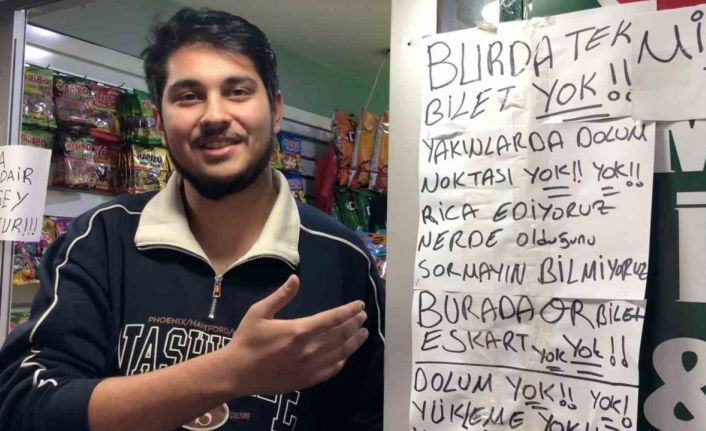 BURDA TEK
BİLET YOK!!
YAKINLARDA DOLUM
NOKTASI YOK!! YOK!!
RİCA EDİYORUZ
NERDE olduğunu
SORMAYIN BİLMİYORUZ
BURADA QR BİLET
ESKART YOK YOK!!
DOLUM YOK!! YOK!
YÜKLEME YOK!!
DAİR
ŞEY
TUR!!!
HARIBO
HARIBO
PHOENIX/HARTFORD/
NASHV
CULTURE
&